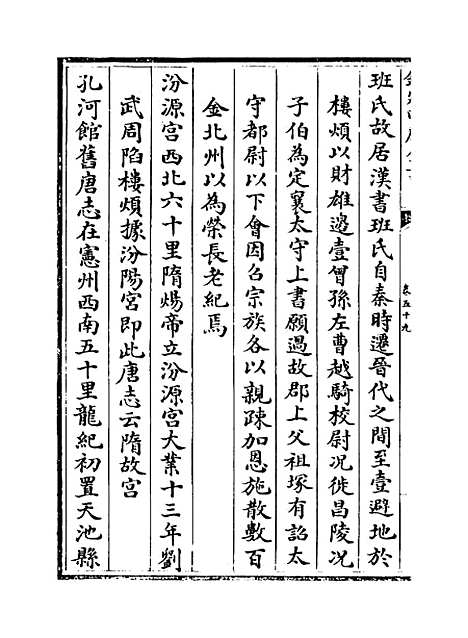 欽定四庫全書
卷五十九
班氏故居漢書班氏自秦時遷晉代之間至壹避地於
樓煩以財雄邊壹曾孫左曹越騎校尉况徙昌陵况
子伯為定襄太守上書願過故郡上父祖塚有詔太
守都尉以下會因召宗族各以親疎加恩施散數百
金北州以為榮長老紀焉
汾源宫西北六十里隋煬帝立汾源宫大業十三年劉
武周陷樓煩據汾陽宫即此唐志云隋故宫
孔河館舊唐志在憲州西南五十里龍紀初置天池縣